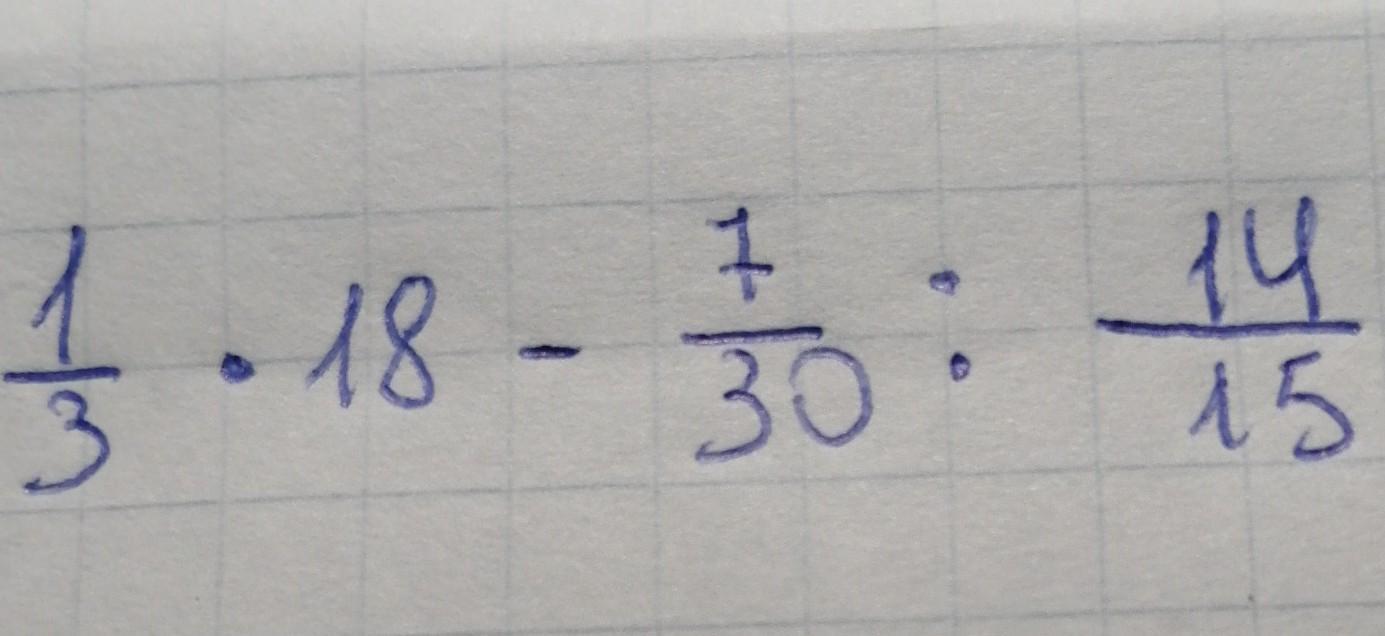 1/3 · 18 - 7/30 : 14/15